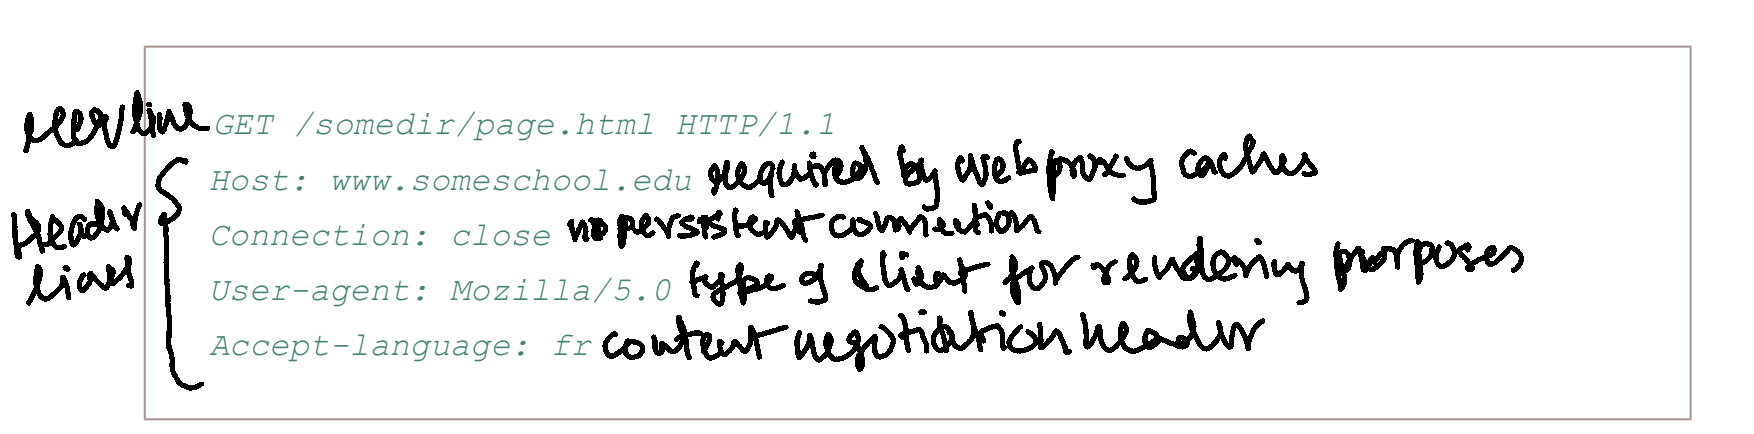 GET /somedir/page.html HTTP/1.1
Host: www.someschool.edu required by web proxy caches
Connection: close no persistent connection
Header lines
User-agent: Mozilla/5.0 type of client for rendering purposes
Accept-language: fr content negotiation header